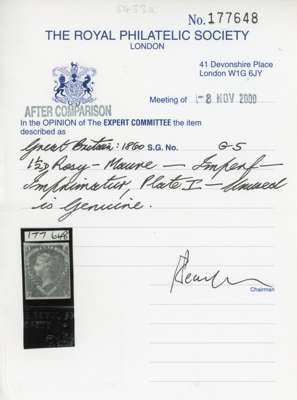 5433a
No. 177648
THE ROYAL PHILATELIC SOCIETY
LONDON
41 Devonshire Place
London W1G 6JY
AFTER COMPARISON
Meeting of - 8 NOV 2000
In the OPINION of The EXPERT COMMITTEE the item
described as
Great Britain: 1860 S.G. No. G-5
1½d Rosy-Mauve — Imperf
Imprimatur, Plate I — Unused
is Genuine.
177 648
Chairman